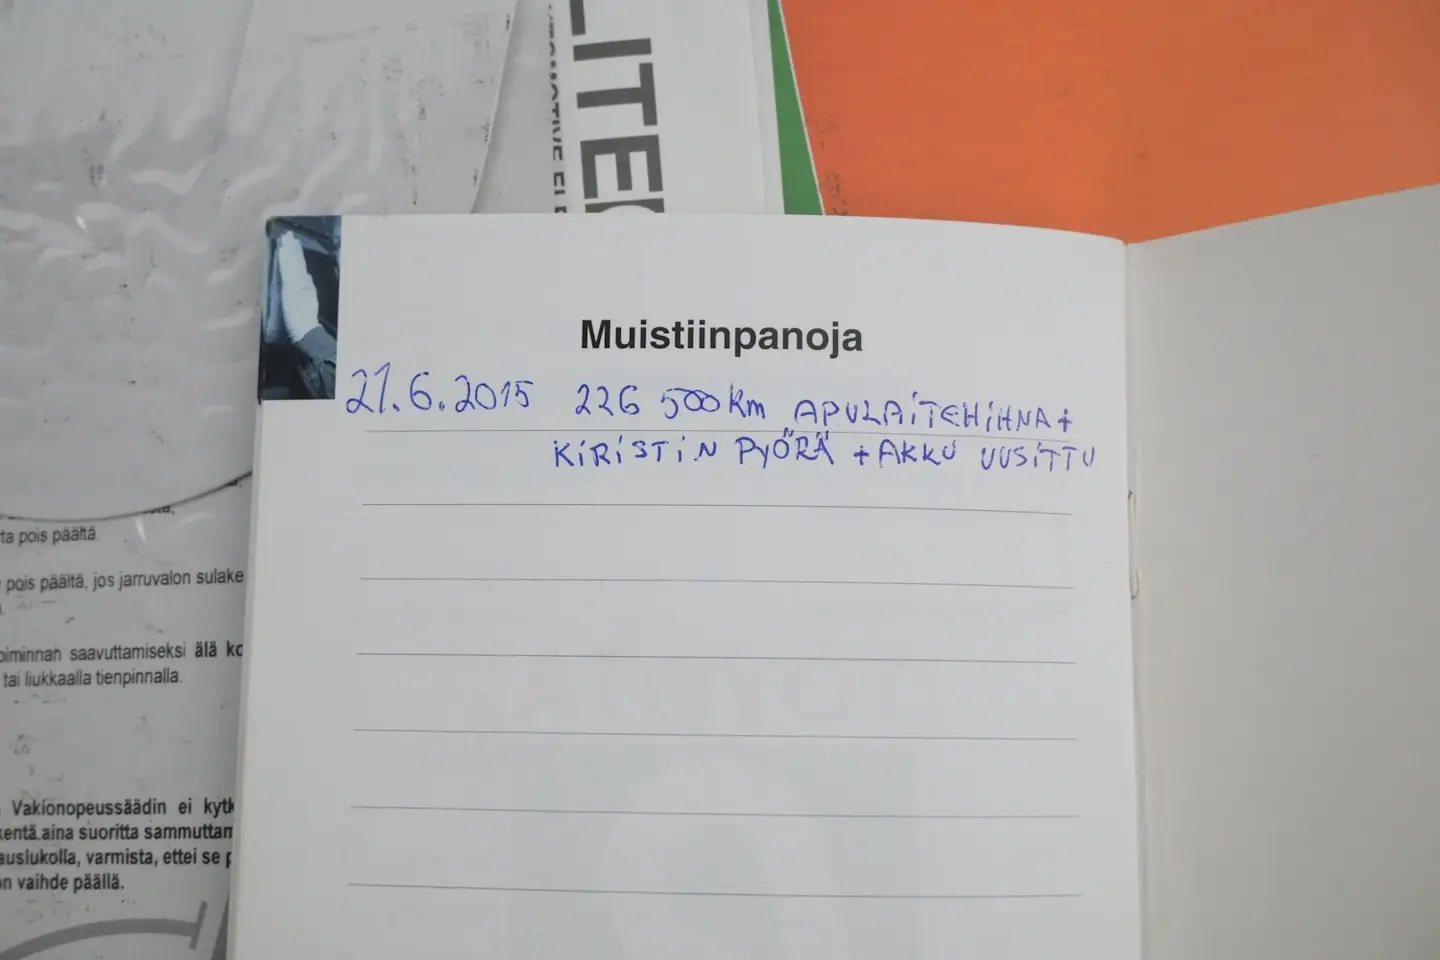 LITE
Muistiinpanoja
21.6.2015 226 500 km APULAITEHIHNA +
KIRISTIN PYÖRÄ + AKKU UUSITTU
ta pois päältä.
pois päältä, jos jarruvalon sulake
oiminnan saavuttamiseksi älä ko
tai liukkaalla tienpinnalla.
Vakionopeussäädin ei kytk
kentä.aina suoritta sammuttam
auslukolla, varmista, ettei se p
on vaihde päällä.